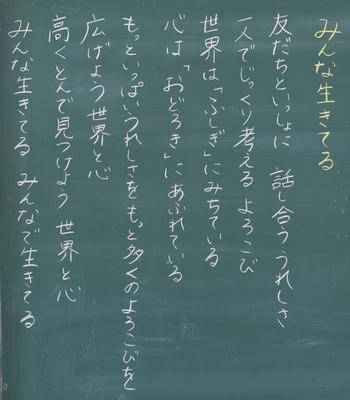 みんな生きてる
友だちといっしょに 話し合う うれしさ
一人でじっくり考える よろこび
世界は「ふしぎ」にみちている
心は「おどろき」にあふれている
もっといっぱいうれしさをもっと多くのよろこびを
広げよう世界と心
高くとんで見つけよう 世界と心
みんな生きてる みんなで生きてる